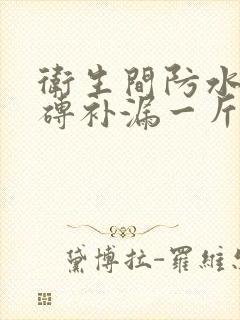 衛生間防水
磚补漏一斤
黛博拉-羅維